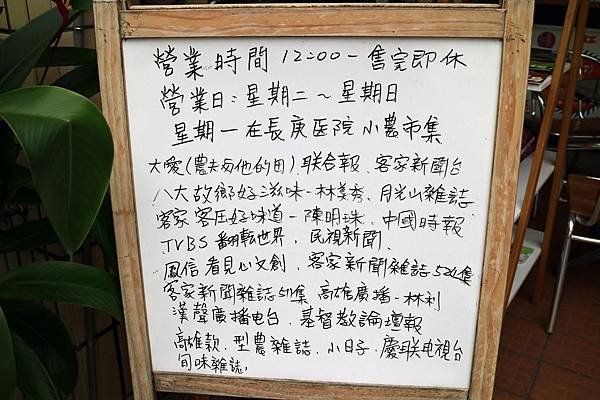 營業時間 12:00-售完即休
營業日：星期二～星期日
星期一在長庚医院小農市集
大愛(農夫与他的田)、联合報、客家新聞台
八大故鄉好滋味-林美秀、月光山雜誌
客家客庄好味道-陳明珠、中國時報
TVBS翻轉世界、民視新聞、
鳳信看見心文創、客家新聞雜誌521集
客家新聞雜誌511集 高雄廣播-林利
漢聲廣播电台、基督教論壇報
高雄款、型農雜誌、小日子、慶联电視台
旬味雜誌,